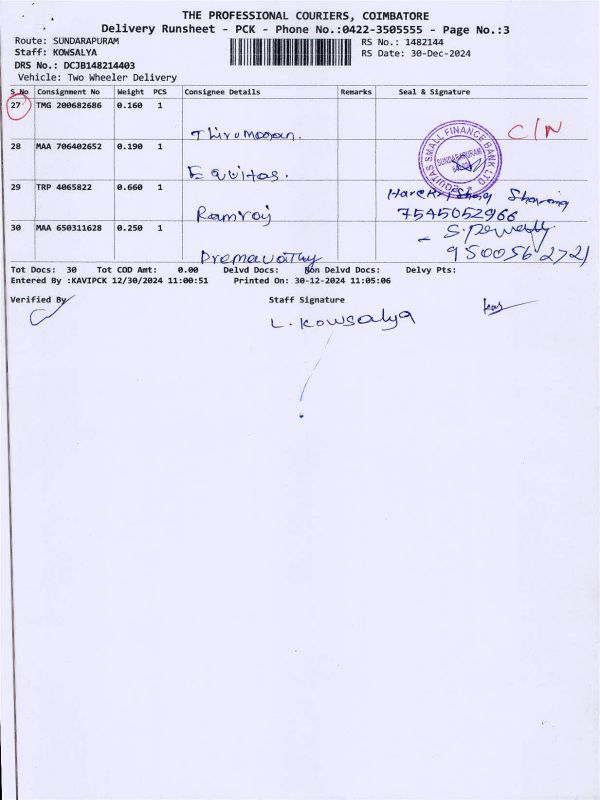 THE PROFESSIONAL COURIERS, COIMBATORE
Delivery Runsheet - PCK - Phone No.:0422-3505555 - Page No.:3
Route: SUNDARAPURAM RS No.: 1482144
Staff: KOWSALYA RS Date: 30-Dec-2024
DRS No.: DCJB148214403
Vehicle: Two Wheeler Delivery
S.No Consignment No Weight PCS Consignee Details Remarks Seal & Signature
27 TMG 200682686 0.160 1
Thirumagan. C/N
28 MAA 706402652 0.190 1
Equitas.
EQUITAS SMALL FINANCE BANK LTD
SUNDARAPURAM
29 TRP 4065822 0.660 1
Ramraj
7545052966
30 MAA 650311628 0.250 1
Premavathy
Tot Docs: 30 Tot COD Amt: 0.00 Delvd Docs: Non Delvd Docs: Delvy Pts:
Entered By :KAVIPCK 12/30/2024 11:00:51 Printed On: 30-12-2024 11:05:06
Verified By Staff Signature
L. Kowsalya